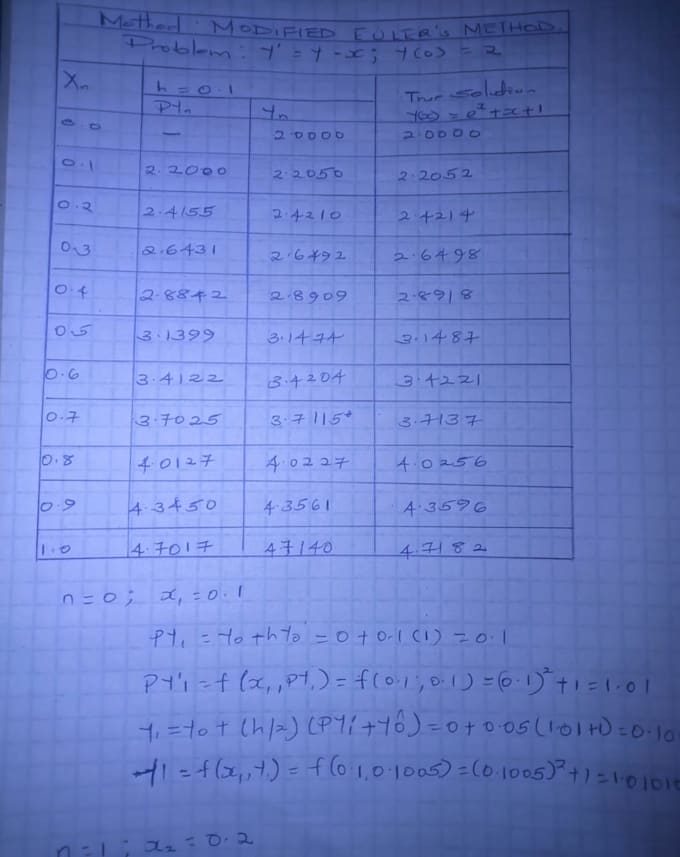 Method: MODIFIED EULER'S METHOD
Problem: y' = y - x; y(0) = 2
Xn h = 0.1 True Solution
PYn Yn y(x) = e^x + x + 1
0.0 — 2.0000 2.0000
0.1 2.2000 2.2050 2.2052
0.2 2.4155 2.4210 2.4214
0.3 2.6431 2.6492 2.6498
0.4 2.8842 2.8909 2.8918
0.5 3.1399 3.1474 3.1487
0.6 3.4122 3.4204 3.4221
0.7 3.7025 3.7115 3.7137
0.8 4.0127 4.0227 4.0256
0.9 4.3450 4.3561 4.3596
1.0 4.7017 4.7140 4.7182
n = 0; x₁ = 0.1
PY₁ = Y₀ + hY₀' = 0 + 0.1(1) = 0.1
PY'₁ = f(x₁, PY₁) = f(0.1, 0.1) = (0.1)² + 1 = 1.01
Y₁ = Y₀ + (h/2)(PY₁' + Y₀') = 0 + 0.05(1.01+1) = 0.10
Y1 = f(x₁, Y₁) = f(0.1, 0.1005) = (0.1005)² + 1 = 1.0101
n = 1; x₂ = 0.2